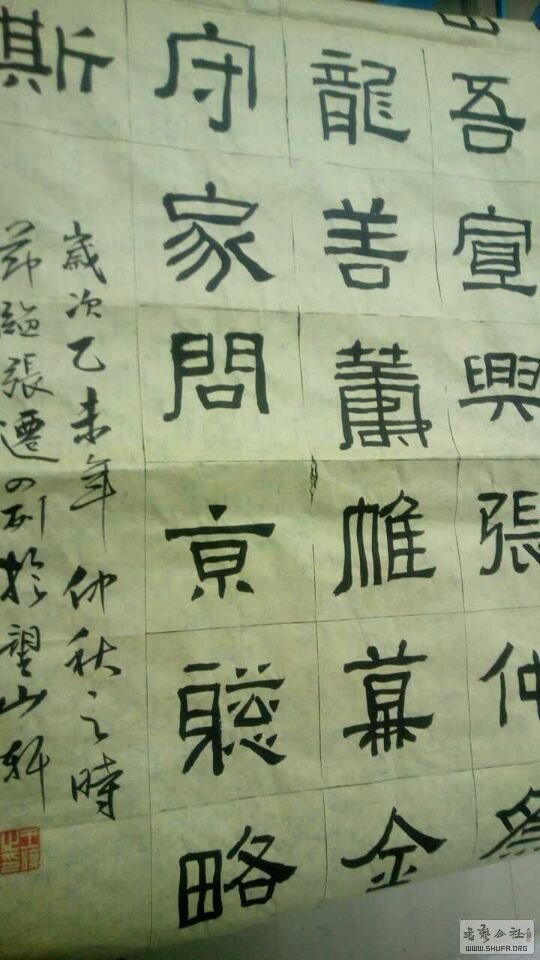 吾宣興張仲
龍善籌帷幕金
守家問京聰略
斯
歲次乙未年仲秋之時
節臨張遷四列於望山軒
WWW.SHUFA.ORG